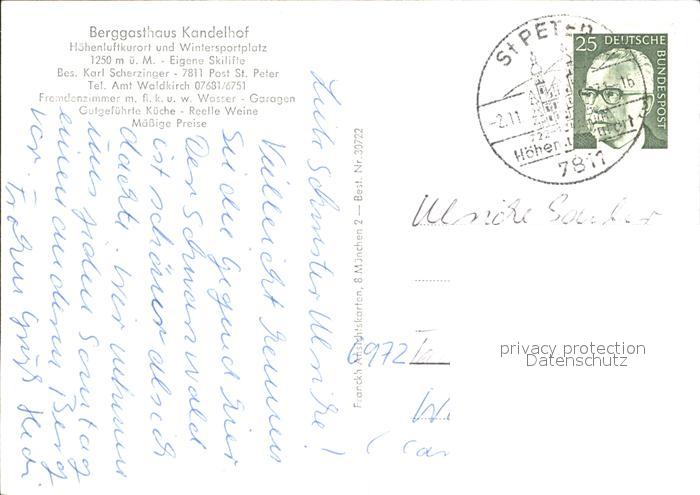 Berggasthaus Kandelhof
Höhenluftkurort und Wintersportplatz
1250 m ü. M. - Eigene Skilifte
Bes. Karl Scherzinger - 7811 Post St. Peter
Tel. Amt Waldkirch 07681/6751
Fremdenzimmer m. fl. k. u. w. Wasser - Garagen
Gutgeführte Küche - Reelle Weine
Mäßige Preise
Liebe Schwester Ulrike!
Vielleicht kennen
Sie die Gegend hier.
Der Schwarzwald
ist schöner als ich
dachte. Wir nehmen
uns jeden Sonntag
einen anderen Berg
vor. Frohen Gruß Hedi
Franckh Ansichtskarten, 8 München 2 — Best. Nr. 30722
St PETER
-2.11
Höhen
7811
25 DEUTSCHE
BUNDESPOST
Ulrike
6972
privacy protection
Datenschutz